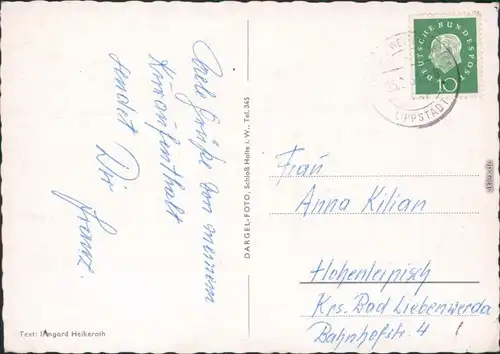 Viele Grüße von meinem
Kuraufenthalt
sendet Dir
Franz.
Text: Irmgard Heikerath
DARGEL-FOTO, Schloß Holte i. W., Tel. 345
DEUTSCHE BUNDESPOST
10
LIPPSTADT
Frau
Anna Kilian
Hohenleipisch
Krs. Bad Liebenwerda
Bahnhofstr. 4